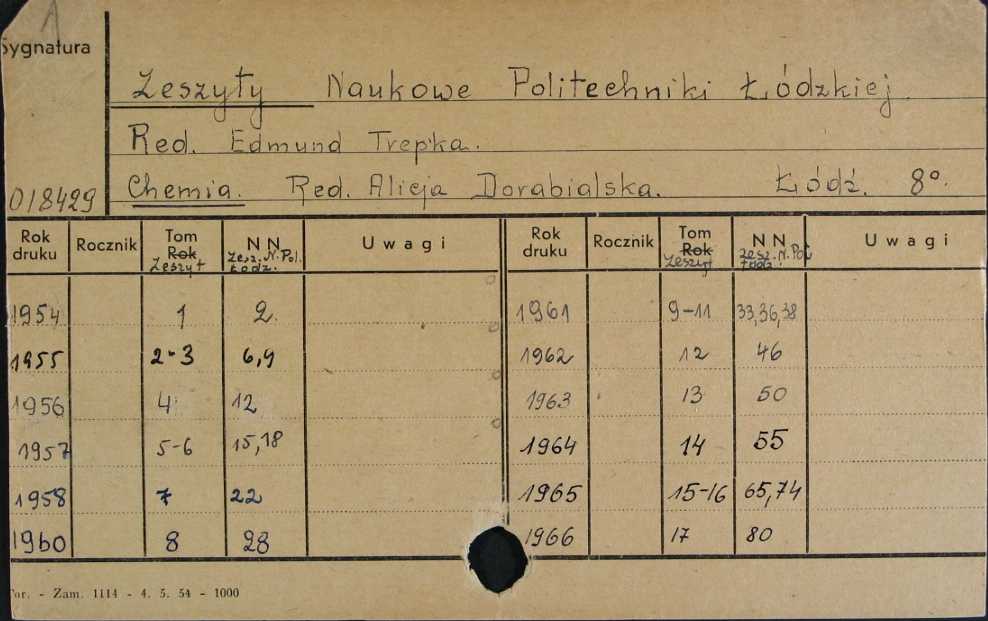 A
Sygnatura
Zeszyty Naukowe Politechniki Łódzkiej
Red. Edmund Trepka.
018429 Chemia. Red. Alicja Dorabialska. Łódź. 8°.
Rok druku Rocznik Tom Rok Zeszyt NN Zesz. N. Pol. Łódz. Uwagi Rok druku Rocznik Tom Rok Zeszyt NN Zesz. N. Poł Łódz. Uwagi
1954 1 2 1961 9-11 33,36,38
1955 2-3 6,9 1962 12 46
1956 4 12 1963 13 50
1957 5-6 15,18 1964 14 55
1958 7 22 1965 15-16 65,74
1960 8 28 1966 17 80
or. - Zam. 1114 - 4. 5. 54 - 1000